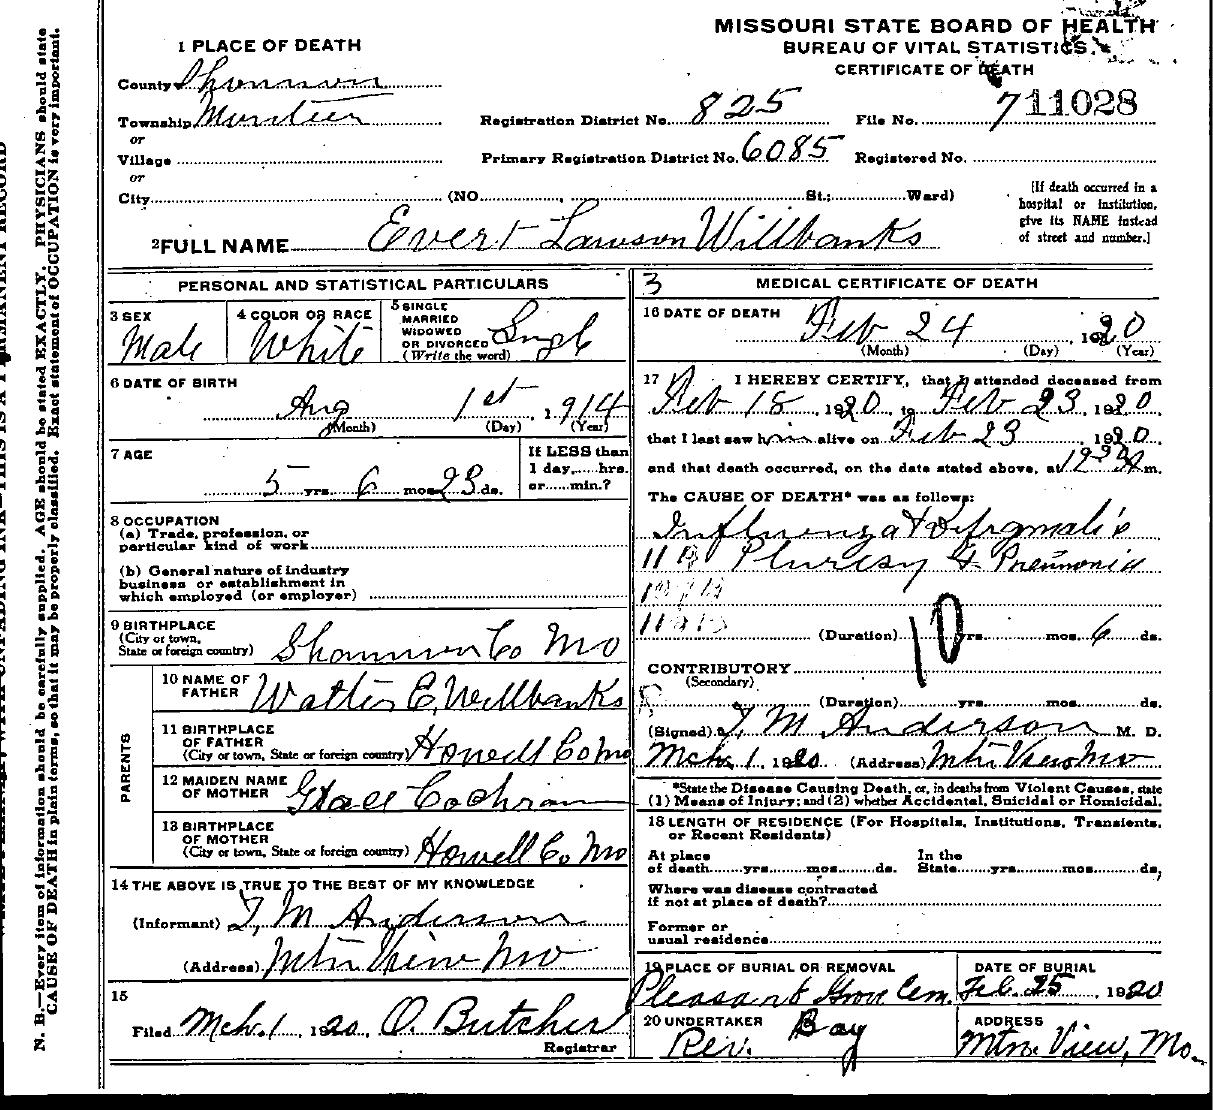 MISSOURI STATE BOARD OF HEALTH
BUREAU OF VITAL STATISTICS
CERTIFICATE OF DEATH
1 PLACE OF DEATH
County Shannon
Township
or
Village
or
City (NO. St.; Ward)
Registration District No. 825
File No. 7 11028
Primary Registration District No. 6085
Registered No.
[If death occurred in a
hospital or institution,
give its NAME instead
of street and number.]
2 FULL NAME Evert Lawson Willbanks
PERSONAL AND STATISTICAL PARTICULARS
3 SEX
Male
4 COLOR OR RACE
White
5 SINGLE
MARRIED
WIDOWED
OR DIVORCED
(Write the word)
Single
6 DATE OF BIRTH
Aug 1st, 1914
(Month) (Day) (Year)
7 AGE
5 yrs. 6 mos. 23 ds.
If LESS than
1 day, hrs.
or min.?
8 OCCUPATION
(a) Trade, profession, or
particular kind of work
(b) General nature of industry
business or establishment in
which employed (or employer)
9 BIRTHPLACE
(City or town,
State or foreign country) Shannon Co Mo
PARENTS
10 NAME OF
FATHER Walter E. Willbanks
11 BIRTHPLACE
OF FATHER
(City or town, State or foreign country) Howell Co Mo
12 MAIDEN NAME
OF MOTHER Grace Cochran
13 BIRTHPLACE
OF MOTHER
(City or town, State or foreign country) Howell Co Mo
14 THE ABOVE IS TRUE TO THE BEST OF MY KNOWLEDGE
(Informant) T. M. Anderson
(Address) Mtn View Mo
15
Filed Mch. 1 1920, O. Butcher
Registrar
3 MEDICAL CERTIFICATE OF DEATH
16 DATE OF DEATH
Feb 24 1920
(Month) (Day) (Year)
17 I HEREBY CERTIFY, that I attended deceased from
Feb 18, 1920, to Feb 23 1920
that I last saw him alive on Feb 23, 1920,
and that death occurred, on the date stated above, at m.
The CAUSE OF DEATH* was as follows:
Influenza &
Pluresy & Pneumonia
10
(Duration) yrs. mos. 6 ds.
CONTRIBUTORY
(Secondary)
(Duration) yrs. mos. ds.
(Signed) T. M. Anderson M. D.
Mch 1, 1920 (Address) Mtn View Mo
*State the Disease Causing Death, or, in deaths from Violent Causes, state
(1) Means of Injury; and (2) whether Accidental, Suicidal or Homicidal.
18 LENGTH OF RESIDENCE (For Hospitals, Institutions, Transients,
or Recent Residents)
At place
of death yrs. mos. ds.
In the
State yrs. mos. ds,
Where was disease contracted
if not at place of death?
Former or
usual residence
19 PLACE OF BURIAL OR REMOVAL
Pleasant Grove Cem.
DATE OF BURIAL
Feb. 25, 1920
20 UNDERTAKER
Rev. Bay
ADDRESS
Mtn. View, Mo.
N. B.—Every item of information should be carefully supplied. AGE should be stated EXACTLY. PHYSICIANS should state
CAUSE OF DEATH in plain terms, so that it may be properly classified. Exact statement of OCCUPATION is very important.